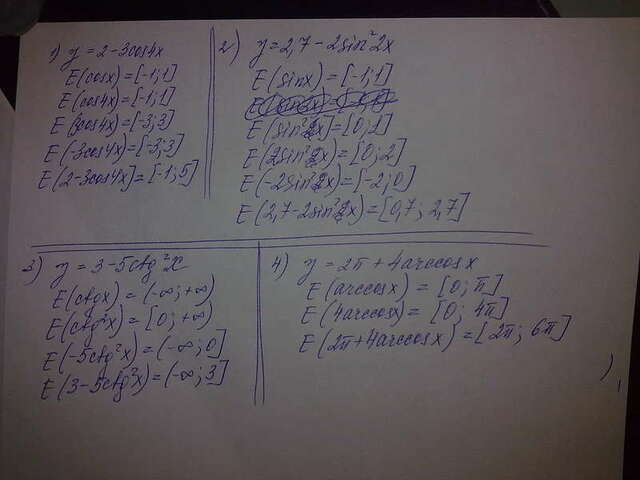 1) y=2-3cos4x
E(cosx)=[-1;1]
E(cos4x)=[-1;1]
E(3cos4x)=[-3;3]
E(-3cos4x)=[-3;3]
E(2-3cos4x]=[-1;5]
2) y=2,7-2sin²2x
E(sinx)=[-1;1]
E(sin²2x]=[0;1]
E(2sin²2x)=[0;2]
E(-2sin²2x)=[-2;0]
E(2,7-2sin²2x)=[0,7; 2,7]
3) y=3-5ctg²x
E(ctgx)=(-∞;+∞)
E(ctg²x)=[0;+∞)
E(-5ctg²x)=(-∞;0]
E(3-5ctg²x)=(-∞;3]
4) y=2π+4arccosx
E(arccosx)=[0;π]
E(4arccosx)=[0; 4π]
E(2π+4arccosx)=[2π; 6π]